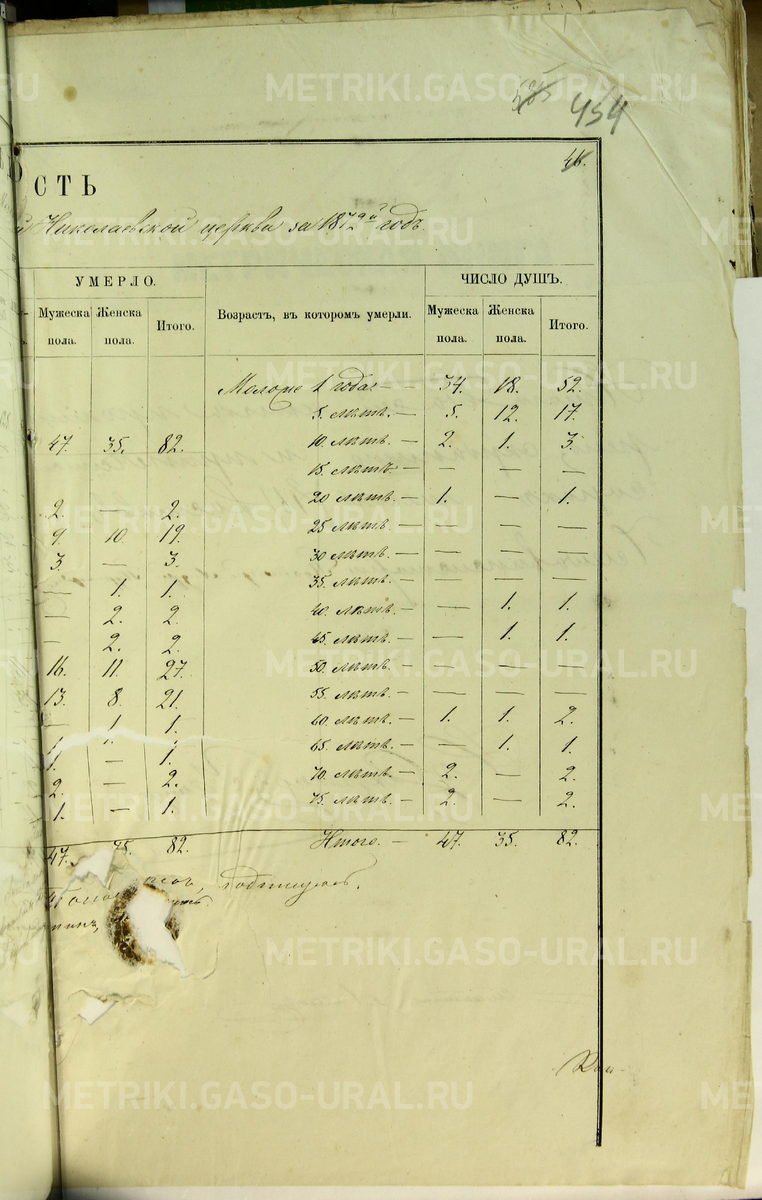 METRIKI.GASO-URAL.RU
454
46.
ОСТЬ
й Николаевской церкви за 1879й годъ.
УМЕРЛО. ЧИСЛО ДУШЪ.
Мужеска пола. Женска пола. Итого. Возрастъ, въ которомъ умерли. Мужеска пола. Женска пола. Итого.
1 года. — 34. 18. 52.
5. лѣтъ. — 5. 12. 17.
47. 35. 82. 10. лѣтъ. — 2. 1. 3.
15. лѣтъ — — — —
20 лѣтъ. — 1. — 1.
2. — 2.
25 лѣтъ. — — — —
9. 10. 19.
30 лѣтъ. — — — —
3. — 3.
35. лѣтъ. — — — —
— 1. 1.
40. лѣтъ. — — 1. 1.
— 2. 2.
45. лѣтъ. — — 1. 1.
— 2. 2.
16. 11. 27. 50. лѣтъ. — — — —
13. 8. 21. 55. лѣтъ. — — — —
— 1. 1. 60. лѣтъ. — 1. 1. 2.
1. — 1. 65. лѣтъ. — — 1. 1.
2. — 2. 70. лѣтъ. — 2. — 2.
1. — 1. 75. лѣтъ. — 2. — 2.
47. 82. Итого. — 47. 35. 82.